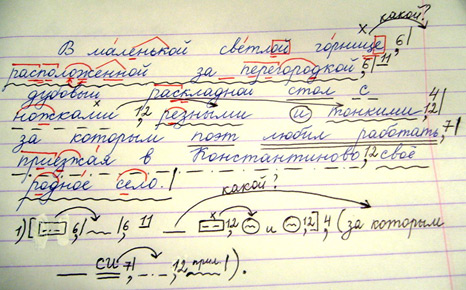 какой?
х
В маленькой светлой горнице, 6/
расположенной за перегородкой, 6/ 11
дубовый раскладной стол с 4
х
ножками, 12 резными и тонкими, 12/
за которым поэт любил работать, 7/
приезжая в Константиново, 12 своё
родное село. /
какой?
х
1) [ 6/ /, 6 11 12, и , 12 ], 4, (за которым
СИ 7/, 12 прил. / ).